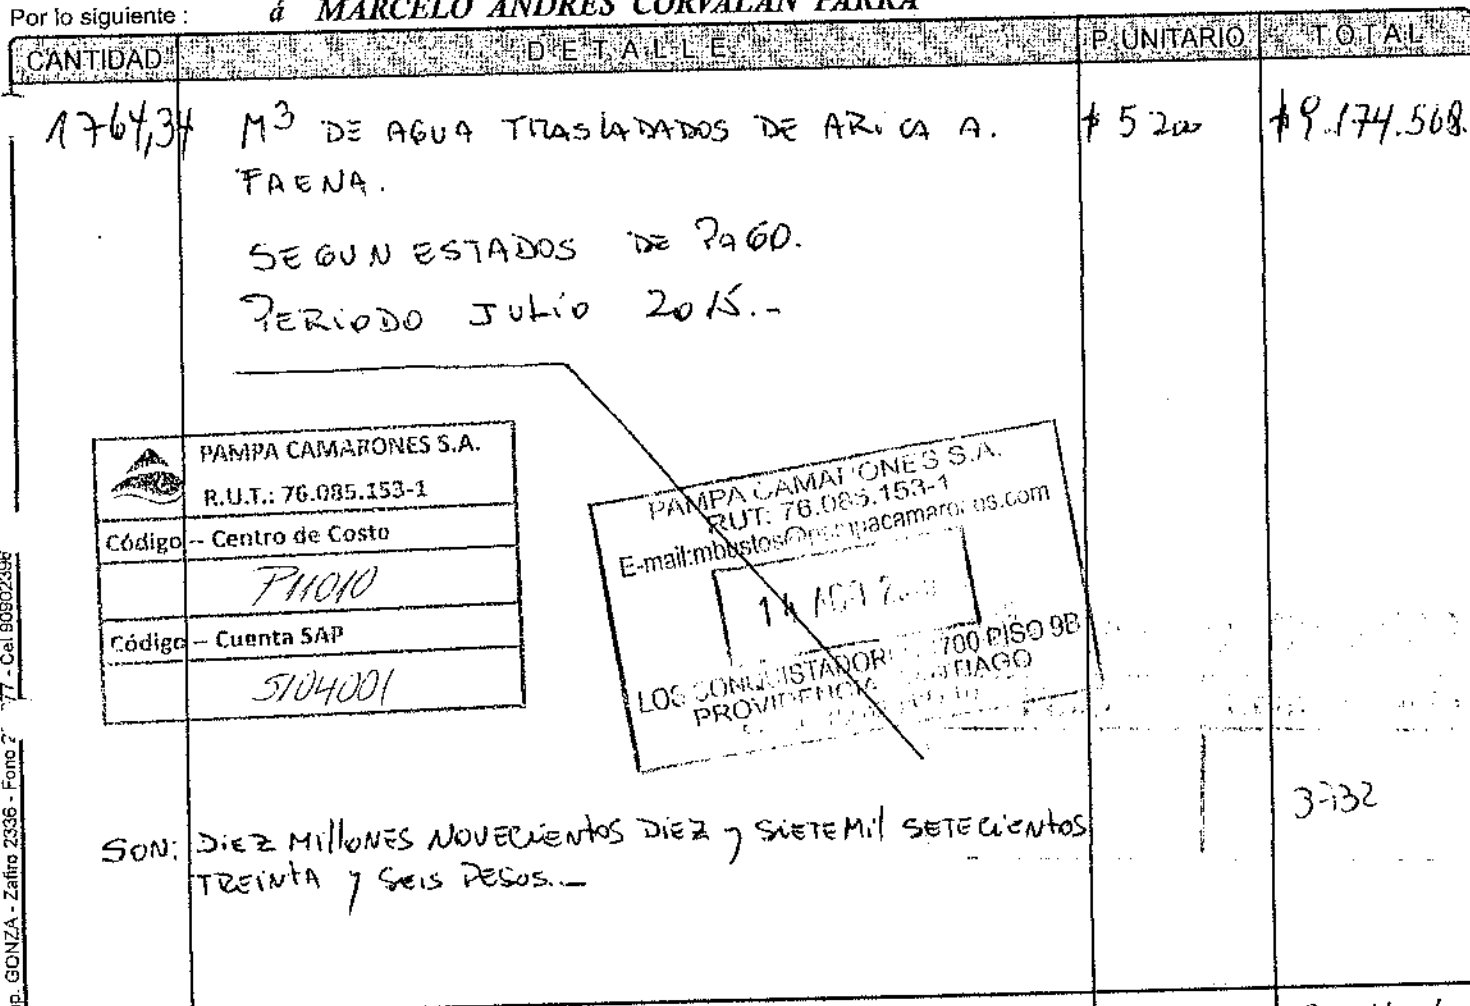 Por lo siguiente : á MARCELO ANDRES CORVALAN PARRA
CANTIDAD DETALLE P. UNITARIO TOTAL
1764,34 M3 DE AGUA TRASLADADOS DE ARICA A. $ 5200 $ 9.174.568.
FAENA.
SEGUN ESTADOS DE PAGO.
PERIODO JULIO 2015.-
PAMPA CAMARONES S.A.
R.U.T.: 76.085.153-1
Código -- Centro de Costo
P11010
Código – Cuenta SAP
5104001
PAMPA CAMARONES S.A.
RUT: 76.085.153-1
E-mail:mbustos@pampacamarones.com
14 AGO
LOS CONQUISTADORES 1700 PISO 9B
PROVIDENCIA SANTIAGO
SON: DIEZ MILLONES NOVECIENTOS DIEZ y SIETE Mil SETECIENTOS
TREINTA y SEIS PESOS.._
GONZA - Zafiro 2336 - Fono 77 - Cel 90902396